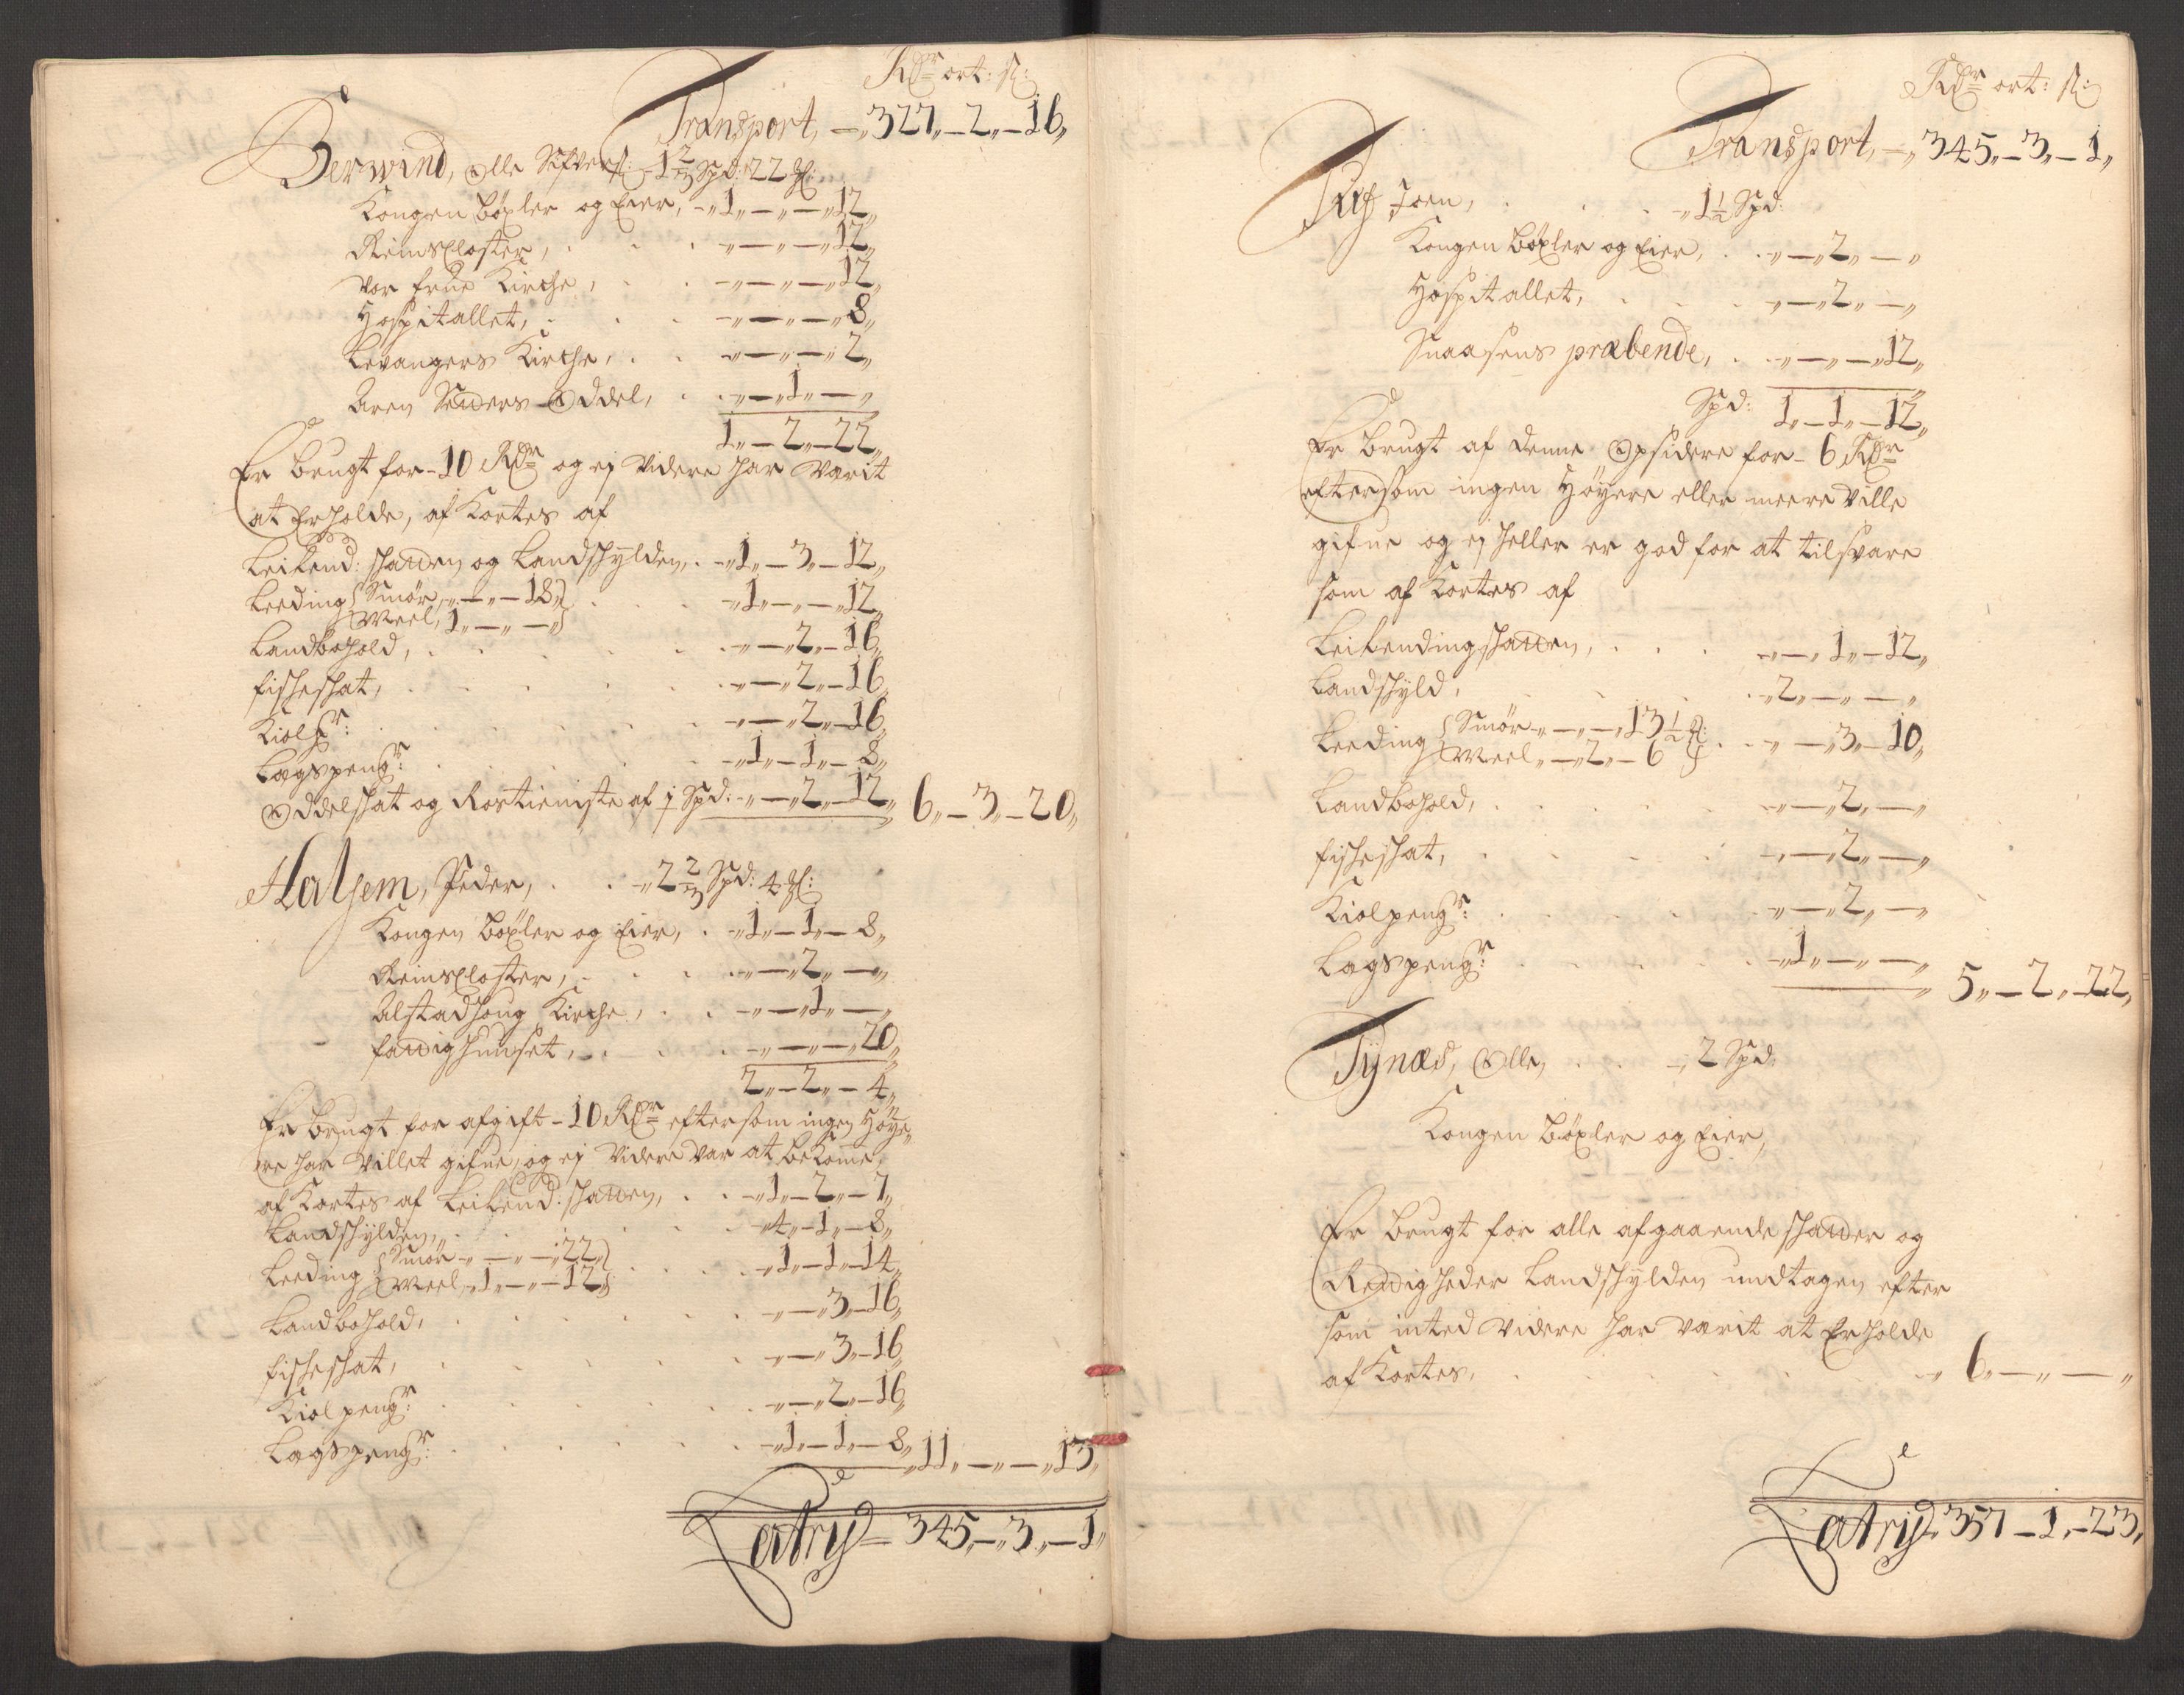 Rdr ort: s:
Transport, — 327 „ — 2 „ — 16 „
Berwind, Olle Sifvers: — 1 2/3 Spd: 22 gl:
Kongen bøxler og Eier, — „ 1 „ — „ — „ 12 „
Reins Closter, . . . — „ — „ — „ 12 „
Vor Frue Kirche, . . — „ — „ — „ 12 „
Hospitallet, . . . — „ — „ — „ 8 „
Levangers Kirche, . . — „ — „ — „ 2 „
Aren Oddel, . . — „ — „ 1 „ — „
1 „ — 2 „ — 22 „
Er brugt for — 10 Rdr og ej videre har varit
at Erholde, af Kortes af
Leilend: schatten og Landschylden, . — „ 1 „ — 3 „ — 12 „
Leeding { Smör — „ — „ — 18 „ } . . . — „ 1 „ — „ — „ 12 „
{ Meel, 1 „ — „ — „ }
Landbohold, . . . . . — „ — „ 2 „ — 16 „
fischeschat, . . . . . — „ — „ 2 „ — 16 „
Kiolp r: . . . . . — „ — „ 2 „ — 16 „
Lagspeng r: . . . . — „ 1 „ — 1 „ — 8 „
Oddelschat og Rostieniste af j Spd: — „ — „ 2 „ — 12 „ 6 „ — 3 „ — 20 „
Halsem, Peder, . . — „ 2 2/3 Spd: 4 gl:
Kongen bøxler og Eier, . — „ 1 „ — 1 „ — 8 „
Reins Closter, . . . — „ — „ 2 „ — „
Alstadhoug Kirche, . . — „ — „ 1 „ — „
fattighuuset, . . . — „ — „ — „ 20 „
2 „ — 2 „ — 4 „
Er brugt for afgift — 10 Rdr eftersom ingen Høye„
re har villet gifue, og ej videre var at bekome,
af Kortes af Leilend: schatten, . . — „ 1 „ — 2 „ — 7 „
Landschylden, . . . . — „ 4 „ — 1 „ — 8 „
Leeding { Smör — „ — „ — „ 22 „ } . . . — „ 1 „ — 1 „ — 14 „
{ Meel — „ 1 „ — „ — 12 „ }
Landbohold, . . . . . — „ — „ 3 „ — 16 „
fischeschat, . . . . . — „ — „ 3 „ — 16 „
Kiolpeng r: . . . . . — „ — „ 2 „ — 16 „
Lagspeng r: . . . . . — „ 1 „ — 1 „ — 8 „ 11 „ — „ — „ 13 „
Latris — 345 „ — 3 „ — 1 „
Rdr ort: s:
Transport, — „ 345 „ — 3 „ — 1 „
Joen, . . . — „ 1 1/2 Spd:
Kongen bøxler og Eier, . . — „ — „ 2 „ — „
Hospitallet, . . . — „ — „ 2 „ — „
Snaasens præbende, . . — „ — „ — „ 12 „
Spd: 1 „ — 1 „ — 12 „
Er brugt af denne Opsidere for — 6 Rdr
eftersom ingen Høyere eller meere ville
gifue og ej heller er god for at tilsvare
som af Kortes af
Leilendingschatten, . . . — „ — „ 1 „ — 12 „
Landschyld, . . . . — „ 2 „ — „ — „
Leeding { Smör — „ — „ — „ 13 1/2 } . . — „ — „ 3 „ — 10 „
{ Meel „ — „ 2 „ — 6 }
Landbohold, . . . . — „ — „ 2 „ — „
fischeschat, . . . . — „ — „ 2 „ — „
Kiolpeng r: . . . . — „ — „ 2 „ — „
Lagspeng r: . . . . — „ 1 „ — „ — „ 5 „ — 2 „ — 22 „
Tynæs, Olle, . . — „ 2 Spd:
Kongen bøxler og Eier,
Er brugt for alle afgaaende schatter og
Rettigheder Landschylden undtagen efter
som inted videre har varit at Erholde
af Kortes, . . . . . — „ 6 „ — „ — „
Latris „ 357 — 1 „ — 23 „